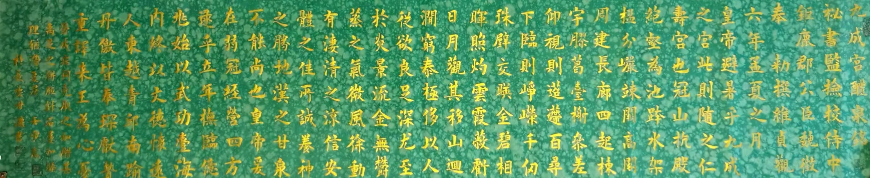 九成宮醴泉銘
祕書監檢校侍中
鉅鹿郡公臣魏徵
奉 勅撰維貞觀
六年孟夏之月
皇帝避暑乎九成
之宮此則隨之仁
壽宮也冠山抗殿
絶壑為池跨水架
楹分巖竦闕高閣
周建長廊四起棟
宇膠葛臺榭參差
仰視則迢遰百尋
下臨則崢嶸千仞
珠璧交暎金碧相
暉照灼雲霞蔽虧
日月觀其移山迴
澗窮泰極侈以人
從欲良足深尤至
於炎景流金無鬱
蒸之氣微風徐動
有淒清之涼信安
體之佳所誠養神
之勝地漢之甘泉
不能尚也皇帝爰
在弱冠經營四方
逮乎立年撫臨億
兆始以武功壹海
內終以文德懷遠
人東越青丘南踰
丹儌皆奉琛獻贄
重譯來王